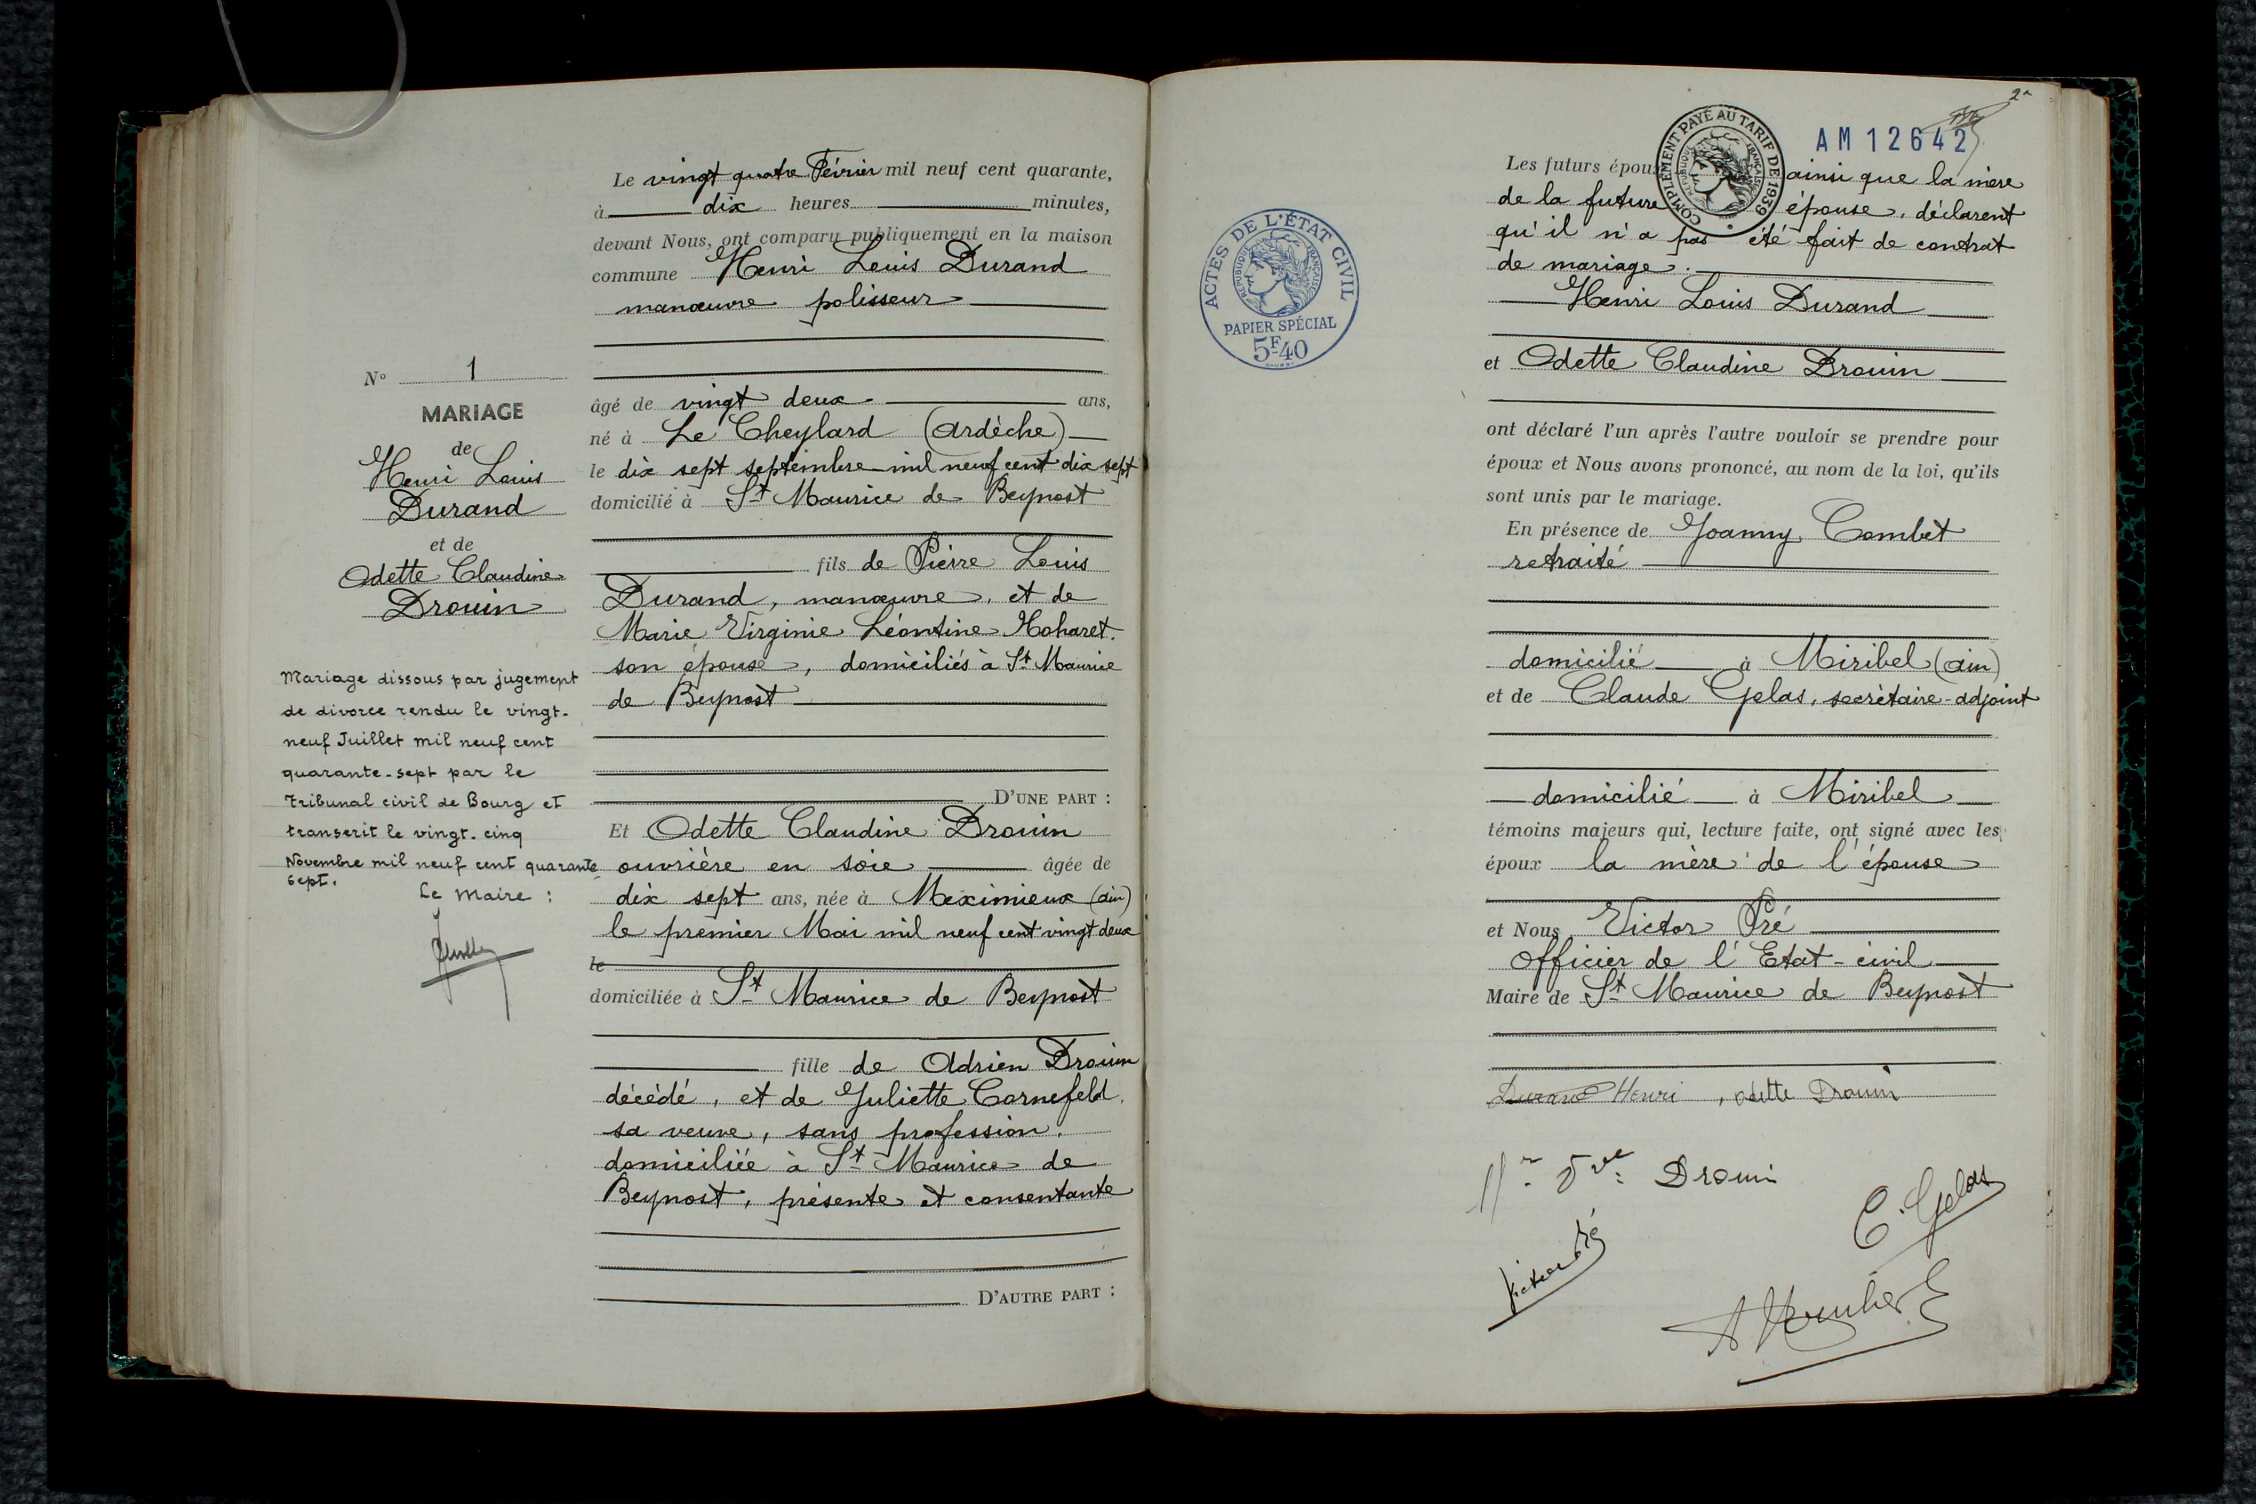 Le vingt quatre Février mil neuf cent quarante,
à dix heures minutes,
devant Nous, ont comparu publiquement en la maison
commune Henri Louis Durand
manœuvre polisseur
âgé de vingt deux ans,
né à Le Cheylard (Ardèche)
le dix sept septembre mil neuf cent dix sept
domicilié à St Maurice de Beynost
fils de Pierre Louis
Durand, manœuvre, et de
Marie Virginie Léontine
son épouse, domiciliés à St Maurice
de Beynost
D'UNE PART :
Et Odette Claudine Drouin
ouvrière en soie âgée de
dix sept ans, née à Meximieux (Ain)
le premier Mai mil neuf cent vingt deux
le
domiciliée à St Maurice de Beynost
fille de Adrien Drouin
décédé, et de Juliette Cornefeld,
sa veuve, sans profession,
domiciliée à St Maurice de
Beynost, présente et consentante
D'AUTRE PART :
N° 1
MARIAGE
de
Henri Louis
Durand
et de
Odette Claudine
Drouin
Mariage dissous par jugement
de divorce rendu le vingt-
neuf Juillet mil neuf cent
quarante-sept par le
Tribunal civil de Bourg et
transcrit le vingt-cinq
Novembre mil neuf cent quarante
sept.
Le Maire :
ACTES DE L'ÉTAT CIVIL
RÉPUBLIQUE FRANÇAISE
PAPIER SPÉCIAL
5F40
2
AM12642
COMPLÉMENT PAYÉ AU TARIF DE 1939
RÉPUBLIQUE FRANÇAISE
Les futurs épou ainsi que la mère
de la future épouse, déclarent
qu'il n'a pas été fait de contrat
de mariage.
Henri Louis Durand
et Odette Claudine Drouin
ont déclaré l'un après l'autre vouloir se prendre pour
époux et Nous avons prononcé, au nom de la loi, qu'ils
sont unis par le mariage.
En présence de Joanny Combet
retraité
domicilié à Miribel (Ain)
et de Claude Gelas, secrétaire-adjoint
domicilié à Miribel
témoins majeurs qui, lecture faite, ont signé avec les
époux la mère de l'épouse
et Nous Victor Pré
Officier de l'Etat-civil
Maire de St Maurice de Beynost
Durand Henri, Odette Drouin
Vve Drouin
C. Gelas
Victor Pré